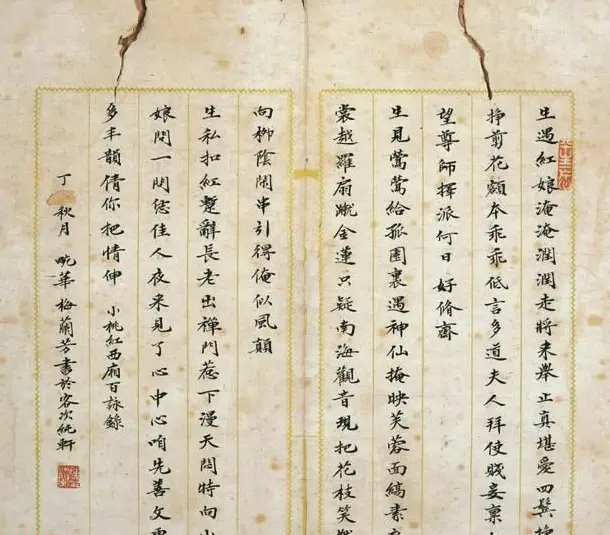 生遇紅娘淹淹潤潤走將來舉止真堪愛四鬢
掙剪花額本乖乖低言多道夫人拜使賤妾稟
望尊師揮派何日好脩齋
生見鶯鶯給孤園裏遇神仙掩映芙蓉面縞素
裳越羅扇蹴金蓮只疑南海觀音現把花枝笑
向柳陰閑串引得俺似風顛
生私扣紅蹔辭長老出禪門惹下漫天悶特向小
娘問一問恁佳人夜來見了心中心咱先善文
多丰韻倩你把情伸 小桃紅西廂百詠錄
丁 秋月 畹華梅蘭芳書於客次純軒